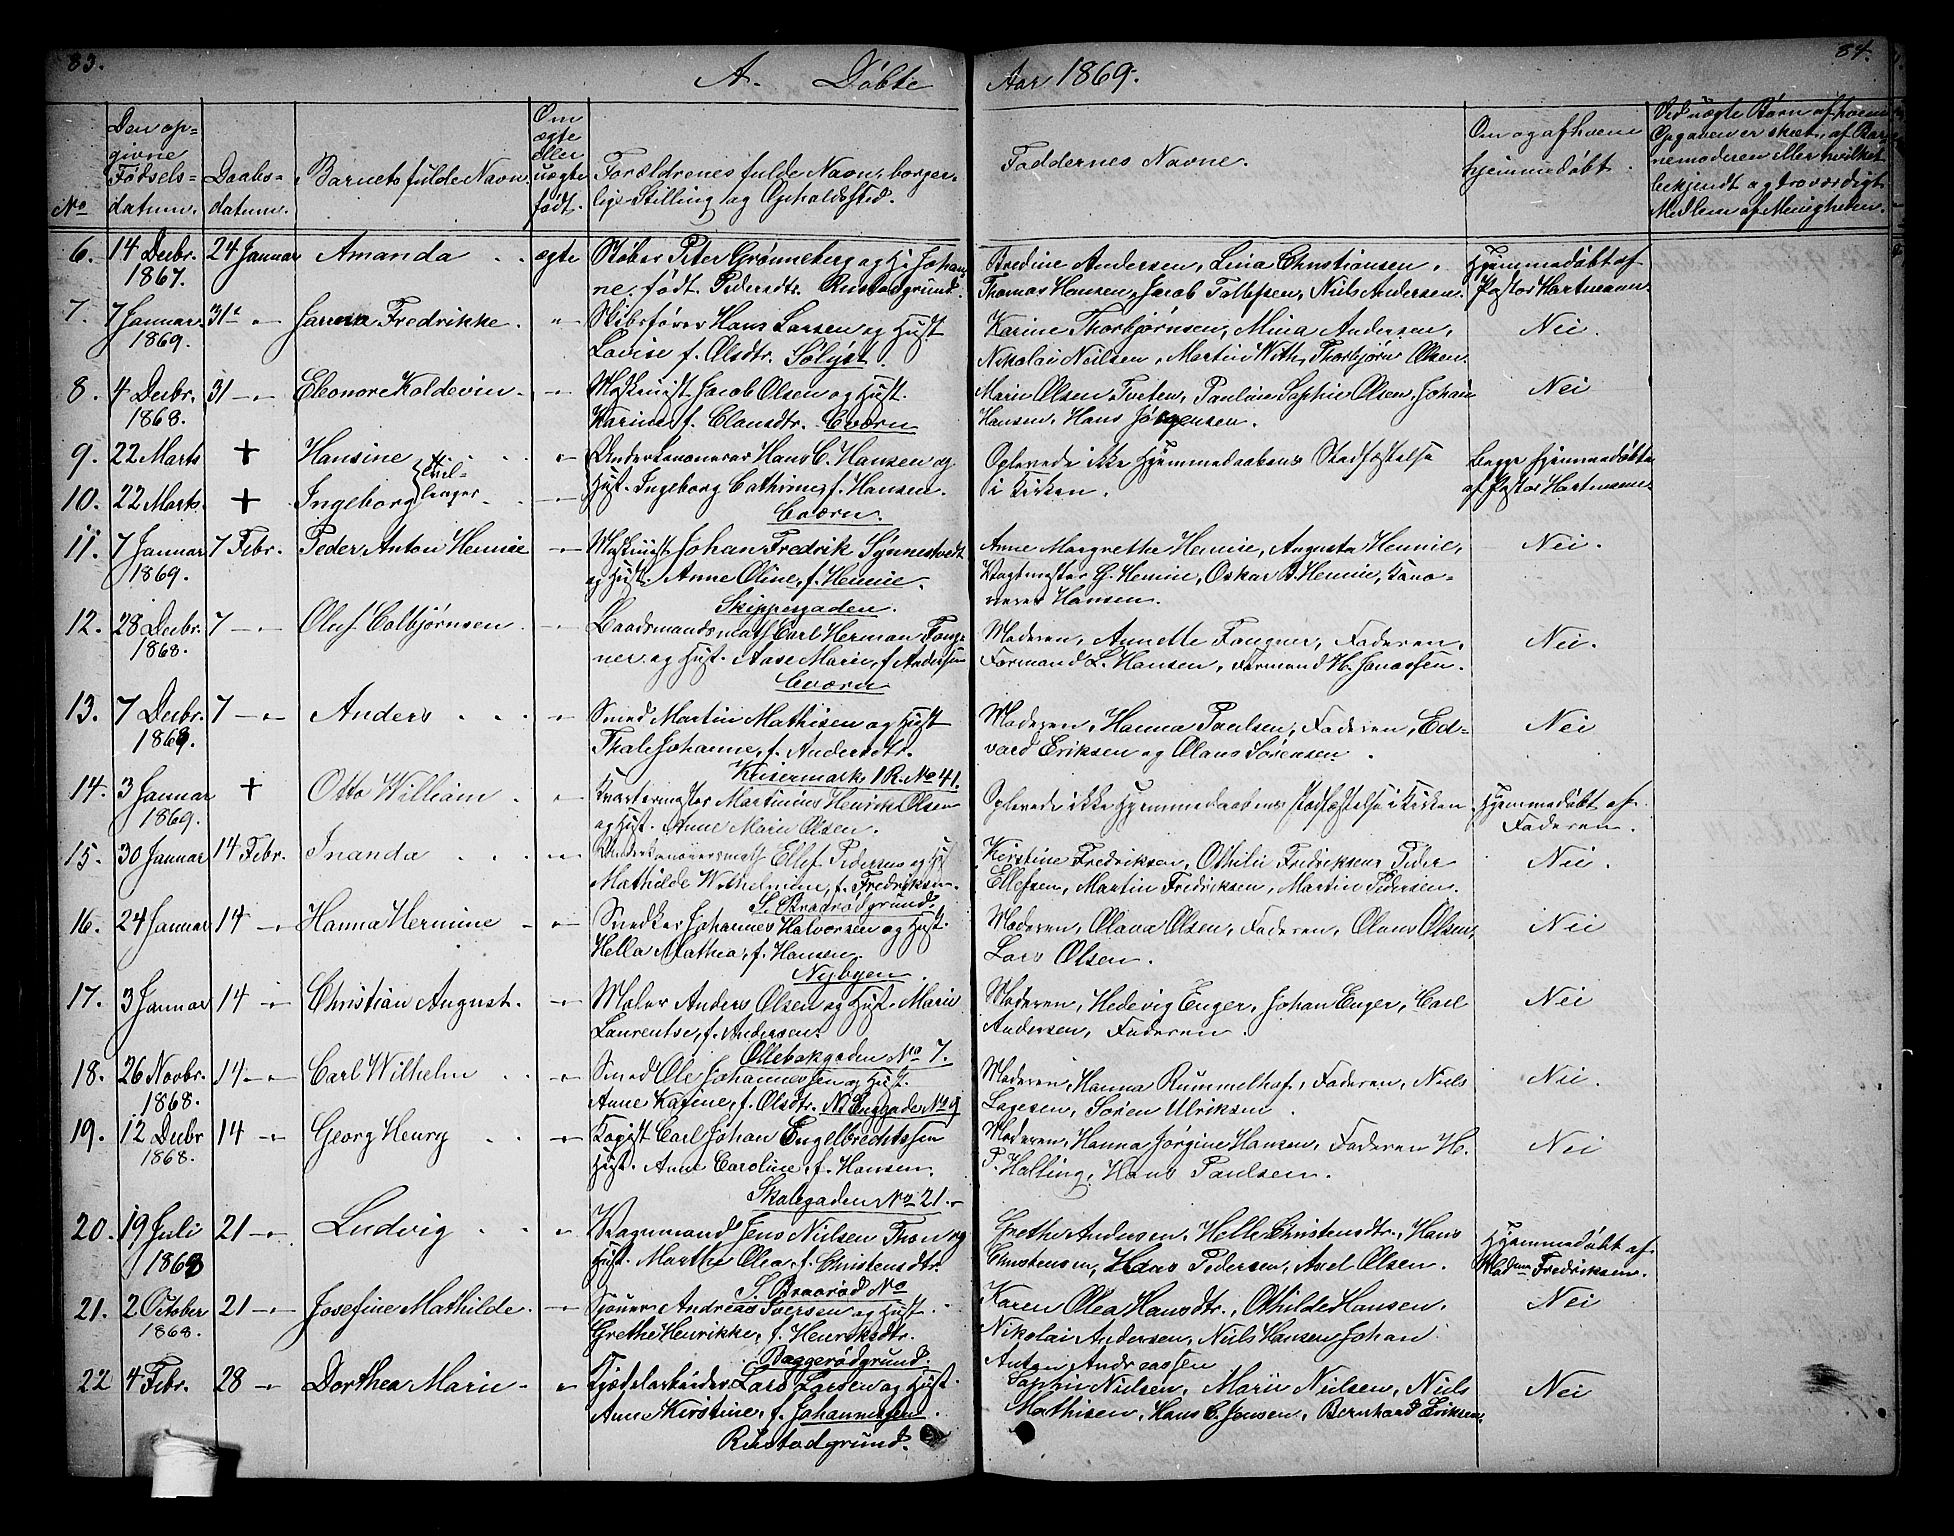 83.
A. Døbte
Aar 1869.
84.
No
Den op=
givne
Fødsels=
datum.
Daabs=
datum.
Barnets fulde Navn.
Om
ægte
eller
uægte
født.
Forældrenes fulde Navn, borger-
lige Stilling og Opholdssted.
Faddernes Navne.
Om og af hvem
hjemmedøbt.
Ved uægte Børn af hvem
Opgaven er skeet, af Bar
nemoderen eller hvilket
bekjendt og troværdigt
Medlem af Menigheden.
6. 14 Decbr. 24 Januar Amanda . . ægte Støber Peter Grønneberg og H. Johan-
1867.
ne, født Pedersdtr. Rustadgrund.
Bredine Andersen, Lina Christiansen,
Thomas Hansen, Jacob Tollefsen, Niels Andersen.
Hjemmedøbt af
Pastor Hartmann.
7. 7 Januar 31te -"- Janna Fredrikke. -"- Skibsfører Hans Larsen og Hust
1869.
Lovise f. Olsdtr. Sølyst.
Karine Thorbjørnsen, Mina Andersen,
Nikolai Neilsen, Martin With, Thorbjørn Olsen.
Nei.
8. 4 Decbr. 31 -"- Eleonore Koldevin. -"- Maskinist Jacob Olsen og Hust.
1868.
Karine f. Clausdtr. Cværn
Marie Olsen Tveten, Pauline Sophie Olsen, Johan
Hansen, Hans Jørgensen.
Nei
9. 22 Marts + Hansine -"- Underkanoneer Hans C. Hansen og
Tvil-
linger
10. 22 Marts. + Ingeborg -"- Hust. Ingeborg Cathrine, f. Hansen.
Cværn.
Oplevede ikke Hjemmedaabens Stadfæstelse
i Kirken.
Begge hjemmedøbte
af Pastor Hartmann
11. 7 Januar 7 Febr. Peder Anton Hennie -"- Maskinist Johan Fredrik Synnestvedt
1869.
og Hust. Anne Oline, f. Hennie.
Skippergaden.
Anne Margrethe Hennie, Augusta Hennie,
Vagtmester G. Hennie, Oskar A. Hennie, Kano-
nerer Hansen.
Nei.
12. 28 Decbr. 7 -"- Oluf Colbjørnsen. -"- Baadsmandsmath Carl Herman Foug-
1868.
ner og Hust. Aase Marie, f. Andersen
Cværn
Moderen, Annette Fougner, Faderen,
Formand L. Hansen, Formand H. Jonassen.
Nei.
13. 7 Decbr. 7 -"- Anders . . . -"- Smed Martin Mathisen og Hust
1868.
Thale Johanne, f. Andersdtr.
Keisermark 1 R. No 41.
Moderen, Hanna Paulsen, Faderen, Ed-
vard Eriksen og Olaus Sørensen.
Nei
14. 3 Januar + Otto William. -"- Kvartermester Martinius Henrik Olsen
1869.
og Hust. Anne Marie Olsen.
Oplevede ikke Hjemmedaabens Stadfæstelse i Kirken.
Hjemmedøbt af
Faderen.
15. 30 Januar 14 Febr. Inanda . . . -"- Underkanoneersmath Ellef Pedersen og Hst
Mathilde Wilhelmine, f. Fredriksen.
S. Braarødgrund.
Kirstine Fredriksen, Othilie Fredriksen, Peder
Ellefsen, Martin Fredriksen, Martin Pedersen.
Nei.
16. 24 Januar 14 -"- Hanna Hermine - -"- Snedker Johannes Halvorsen og Hust.
Hella Mathea, f. Hansen.
Nybyen.
Moderen, Olava Olsen, Faderen, Olaus Olsen,
Lars Olsen.
Nei
17. 3 Januar 14 -"- Christian August. -"- Maler Anders Olsen og Hust. Marie
Laurentse, f. Andersen.
Ollebakgaden No 7.
Moderen, Hedevig Enger, Johan Enger, Carl
Andersen, Faderen.
Nei
18. 26 Novbr. 14 -"- Carl Wilhelm . . -"- Smed Ole Johannessen og Hust.
1868.
Anne Karine, f. Olsdtr. N. Enggade No 9
Moderen, Hanna Rummelhof, Faderen, Niels
Lagesen, Søren Ulriksen.
Nei.
19. 12 Decbr 14 -"- Georg Henry . . -"- Kopist Carl Johan Engelbrechtsen
1868.
Hust. Anne Caroline, f. Hansen.
Skolegaden No 21.
Moderen, Hanna Jørgine Hansen, Faderen H.
P. Holling, Hans Paulsen.
Nei
20. 19 Juli 21 -"- Ludvig . . -"- Vognmand Jens Nielsen Thon og
1868
Hust. Marthe Olea, f. Christensdtr.
S. Braarød No
Grethe Andersen, Helle Christensdtr., Hans
Christensen, Hans Pedersen, Axel Olsen.
Hjemmedøbt af
Madm Fredriksen.
21. 2 October 21 -"- Josefine Mathilde. -"- Sjouer Andreas Iversen og Hust.
1868.
Grethe Henrikke, f. Henriksdtr.
Baggerødgrund.
Karen Olea Hansdtr., Othilde Hansen.
Nikolai Andersen, Niels Hansen, Johan
Anton Andreassen
Nei
22 4 Febr. 28 -"- Dorthea Marie - -"- Kjedelarbeider Lars Larsen og Hust.
Anne Kirstine, f. Johannessen
Rustadgrund.
Sophie Nielsen, Marie Nielsen, Niels
Mathisen, Hans C. Jensen, Bernhard Eriksen.
Nei